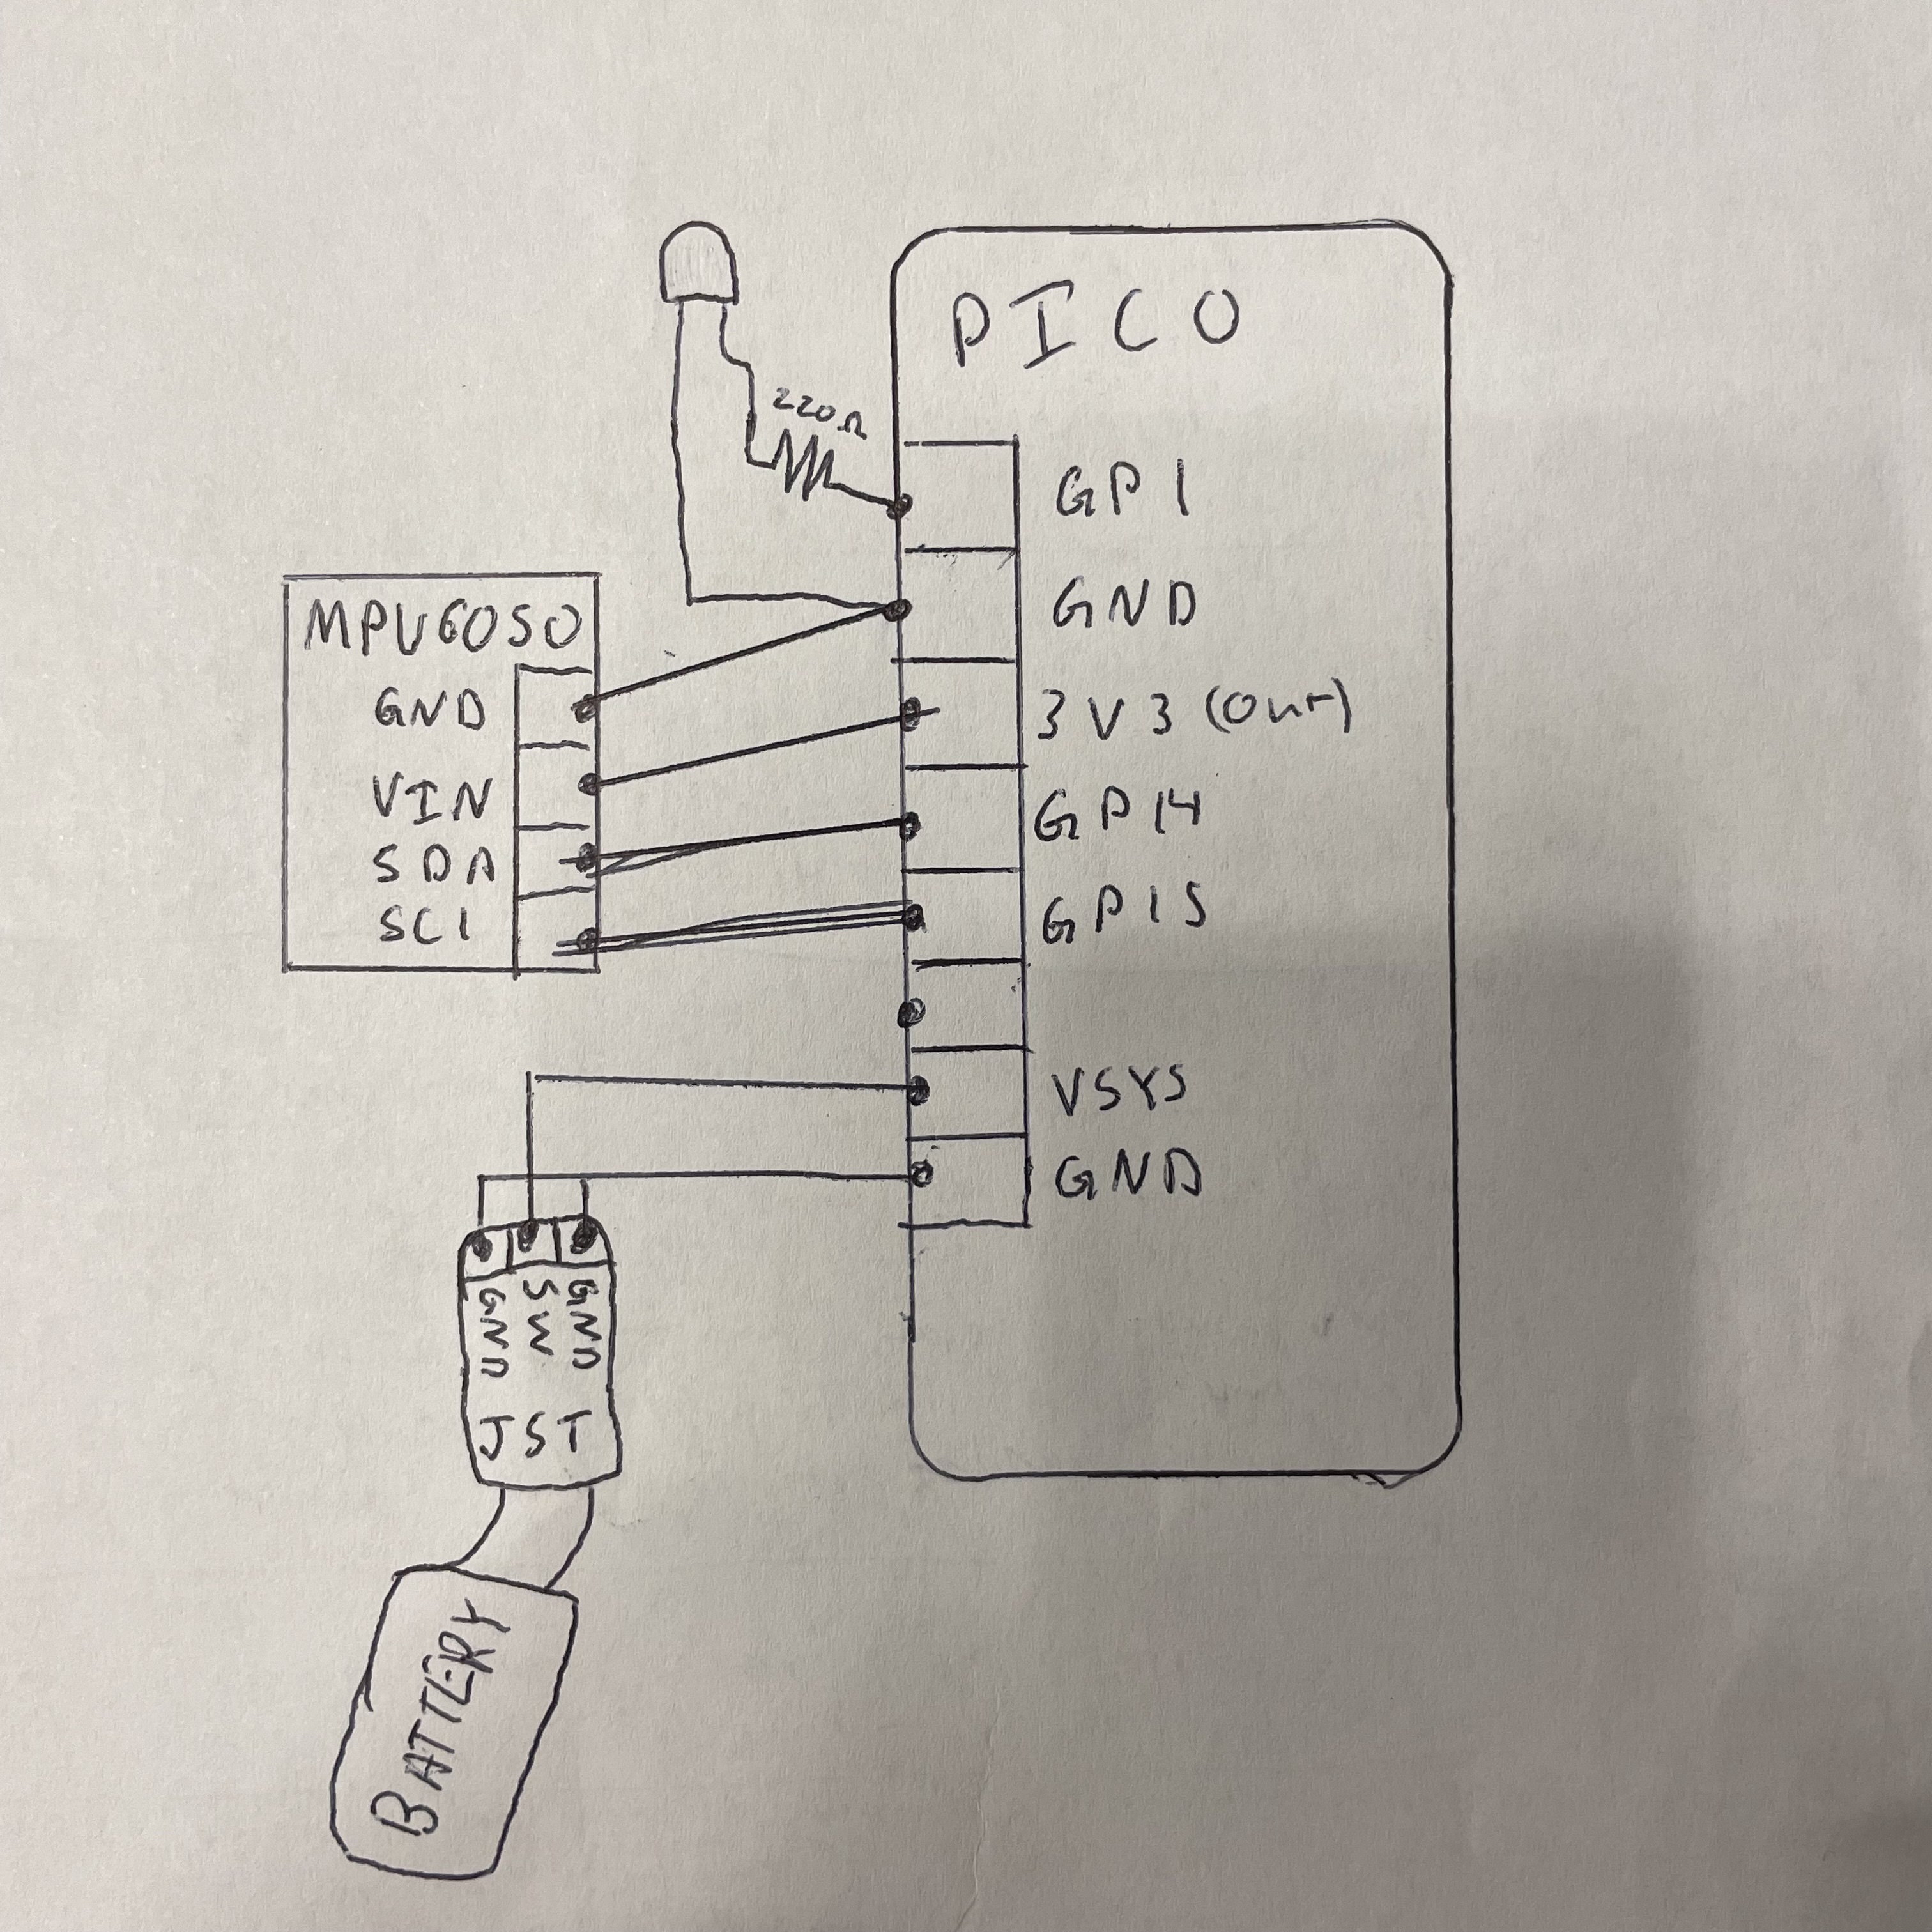 PICO
220Ω
GP1
GND
3V3(OUT)
GP14
GP15
VSYS
GND
MPU6050
GND
VIN
SDA
SCl
GND SW GND
JST
BATTERY